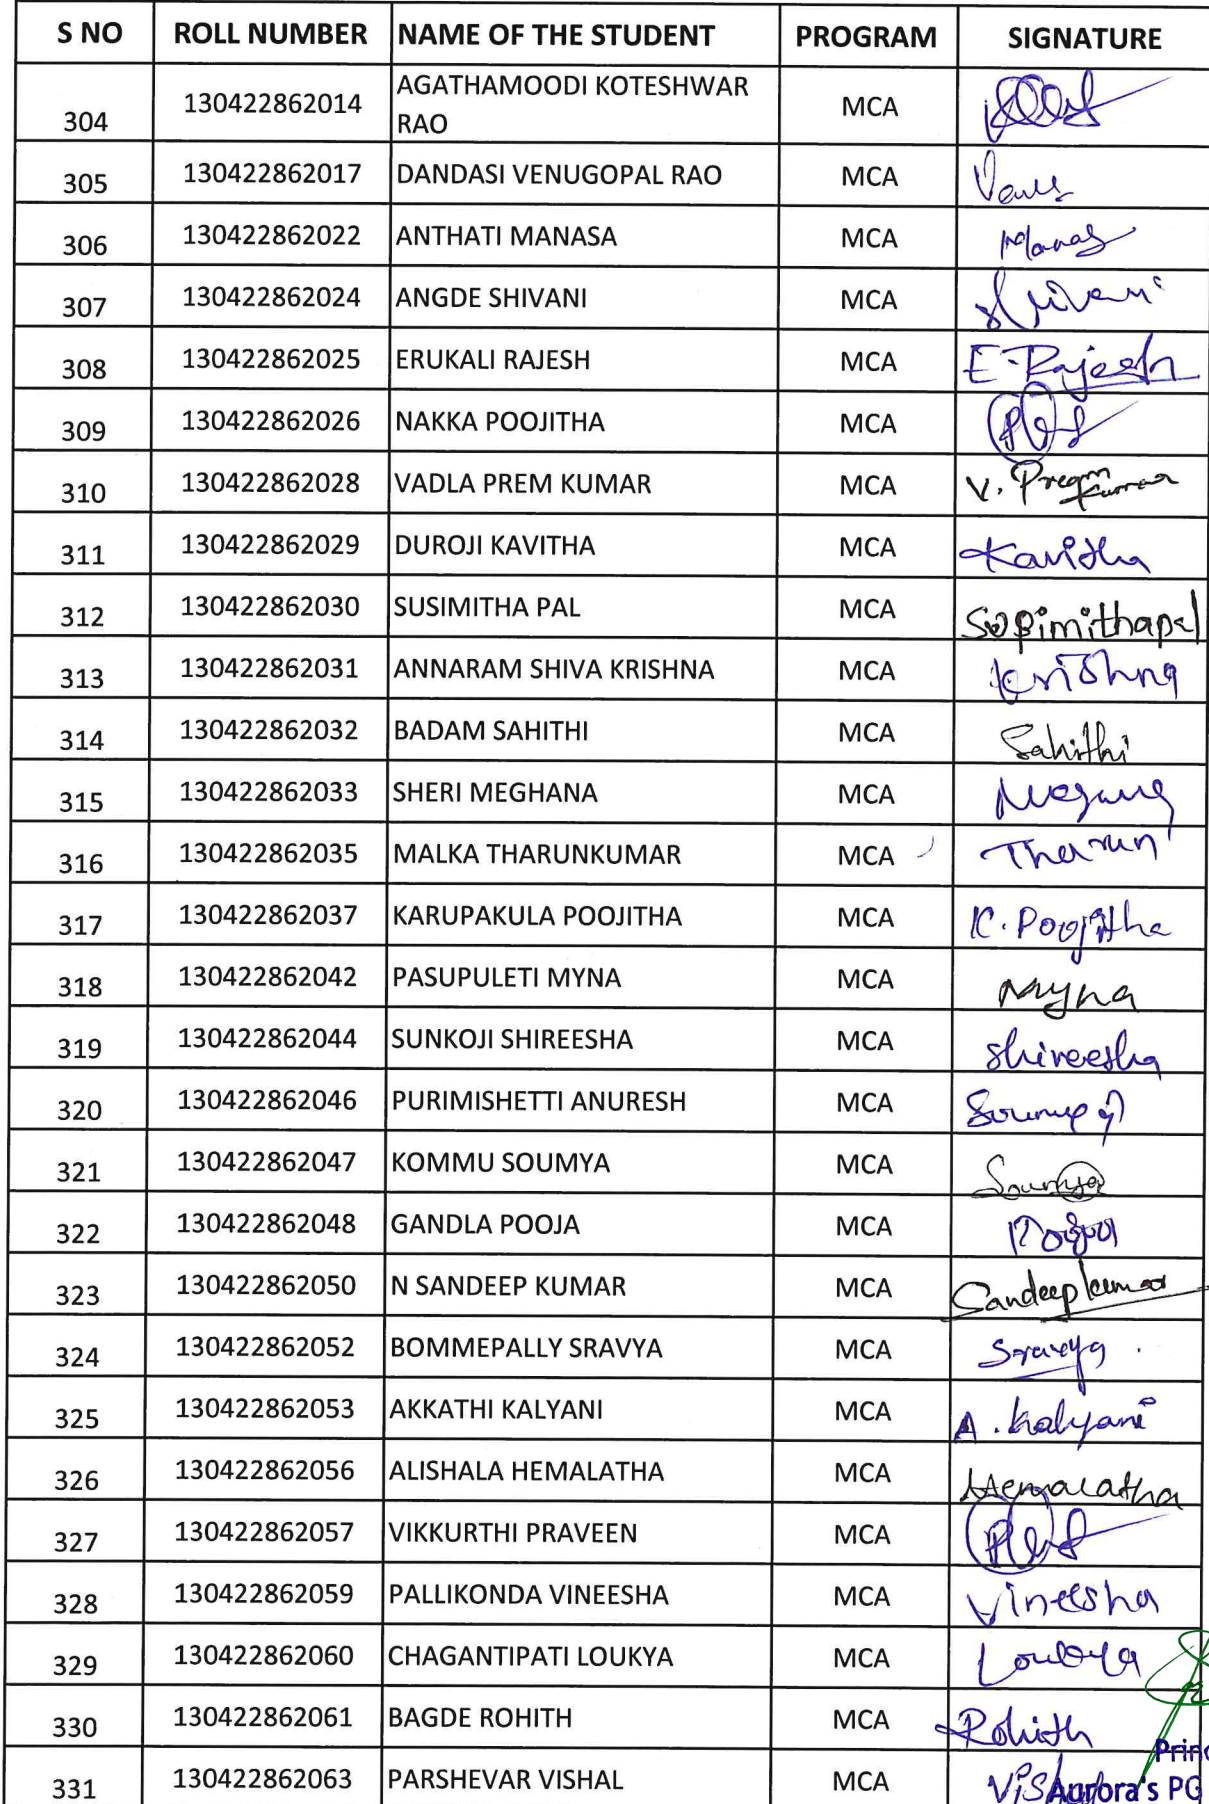 S NO ROLL NUMBER NAME OF THE STUDENT PROGRAM SIGNATURE
304 130422862014 AGATHAMOODI KOTESHWAR RAO MCA
305 130422862017 DANDASI VENUGOPAL RAO MCA
306 130422862022 ANTHATI MANASA MCA
307 130422862024 ANGDE SHIVANI MCA Shivani
308 130422862025 ERUKALI RAJESH MCA E. Rajesh
309 130422862026 NAKKA POOJITHA MCA
310 130422862028 VADLA PREM KUMAR MCA V. Prem Kumar
311 130422862029 DUROJI KAVITHA MCA Kavitha
312 130422862030 SUSIMITHA PAL MCA
313 130422862031 ANNARAM SHIVA KRISHNA MCA Krishna
314 130422862032 BADAM SAHITHI MCA Sahithi
315 130422862033 SHERI MEGHANA MCA
316 130422862035 MALKA THARUNKUMAR MCA Tharun
317 130422862037 KARUPAKULA POOJITHA MCA K. Poojitha
318 130422862042 PASUPULETI MYNA MCA Myna
319 130422862044 SUNKOJI SHIREESHA MCA Shireesha
320 130422862046 PURIMISHETTI ANURESH MCA
321 130422862047 KOMMU SOUMYA MCA Soumya
322 130422862048 GANDLA POOJA MCA Pooja
323 130422862050 N SANDEEP KUMAR MCA Sandeep kumar
324 130422862052 BOMMEPALLY SRAVYA MCA Sravya
325 130422862053 AKKATHI KALYANI MCA A. Kalyani
326 130422862056 ALISHALA HEMALATHA MCA Hemalatha
327 130422862057 VIKKURTHI PRAVEEN MCA
328 130422862059 PALLIKONDA VINEESHA MCA Vineesha
329 130422862060 CHAGANTIPATI LOUKYA MCA Loukya
330 130422862061 BAGDE ROHITH MCA Rohith
Princ
331 130422862063 PARSHEVAR VISHAL MCA
Aurora's PG